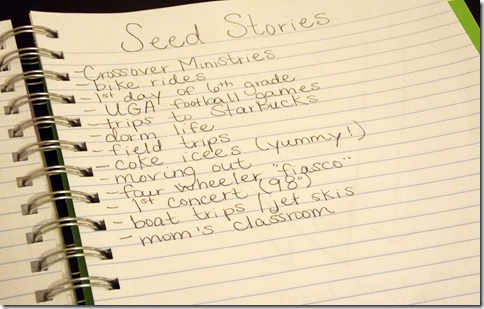 Seed Stories
- Crossover Ministries
- bike rides
- 1st day of 6th grade
- UGA football games
- trips to StarBucks
- dorm life
- field trips
- coke icees (yummy!)
- moving out
- four wheeler "fiasco"
- 1st concert (98°)
- boat trips / jet skis
- mom's classroom